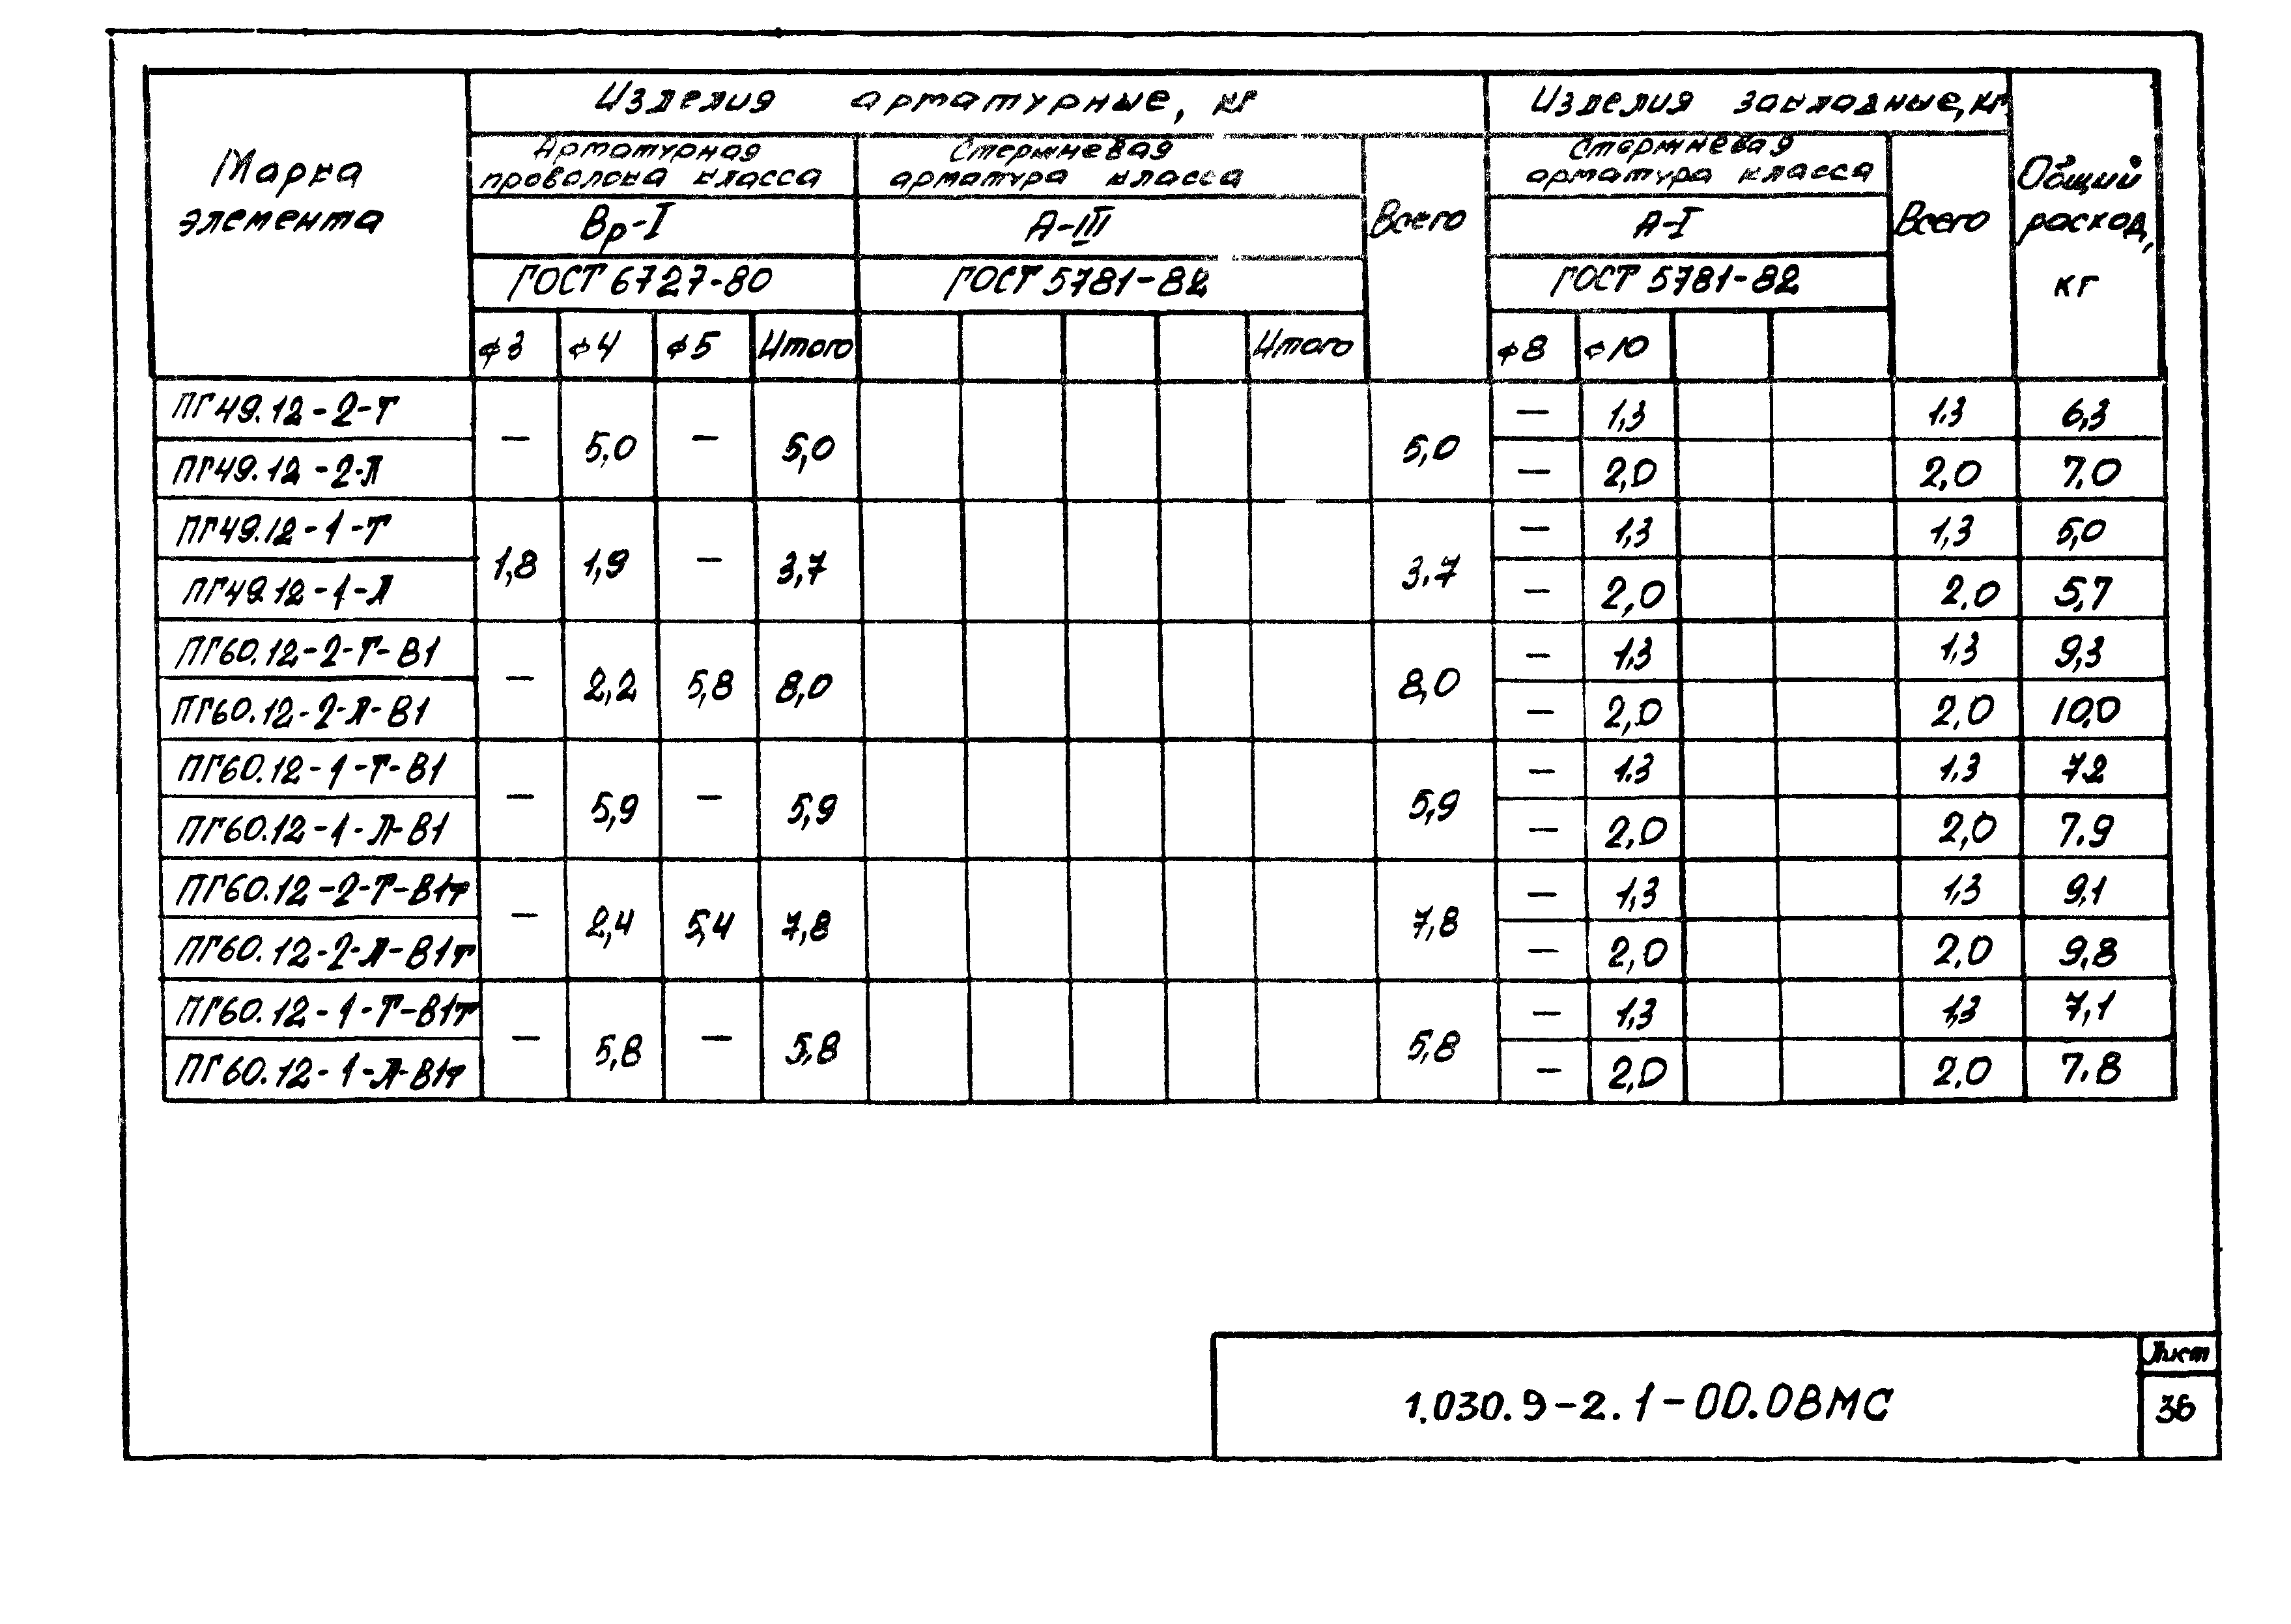 Марка элемента
Изделия арматурные, кг
Изделия закладные, кг
Общий расход, кг
Арматурная проволока класса
Стержневая арматура класса
Всего
Стержневая арматура класса
Всего
Вр-I
А-III
А-I
ГОСТ 6727-80
ГОСТ 5781-82
ГОСТ 5781-82
ф3 ф4 ф5 Итого Итого ф8 ф10
ПГ49.12-2-Т — 5,0 — 5,0 5,0 — 1,3 1.3 6,3
ПГ49.12-2-Л — 2,0 2,0 7.0
ПГ49.12-1-Т 1,8 1,9 — 3,7 3.7 — 1,3 1,3 5,0
ПГ49.12-1-Л — 2,0 2.0 5,7
ПГ60.12-2-Т-В1 — 2,2 5,8 8,0 8,0 — 1.3 1.3 9,3
ПГ60.12-2-Л-В1 — 2,0 2,0 10,0
ПГ60.12-1-Т-В1 — 5,9 — 5,9 5,9 — 1.3 1.3 7.2
ПГ60.12-1-Л-В1 — 2,0 2,0 7.9
ПГ60.12-2-Т-В1т — 2,4 5,4 7,8 7,8 — 1,3 1,3 9,1
ПГ60.12-2-Л-В1т — 2,0 2,0 9,8
ПГ60.12-1-Т-В1т — 5,8 — 5,8 5,8 — 1,3 1,3 7,1
ПГ60.12-1-Л-В1т — 2,0 2,0 7.8
1.030.9-2.1-00.0ВМС
Лист
36